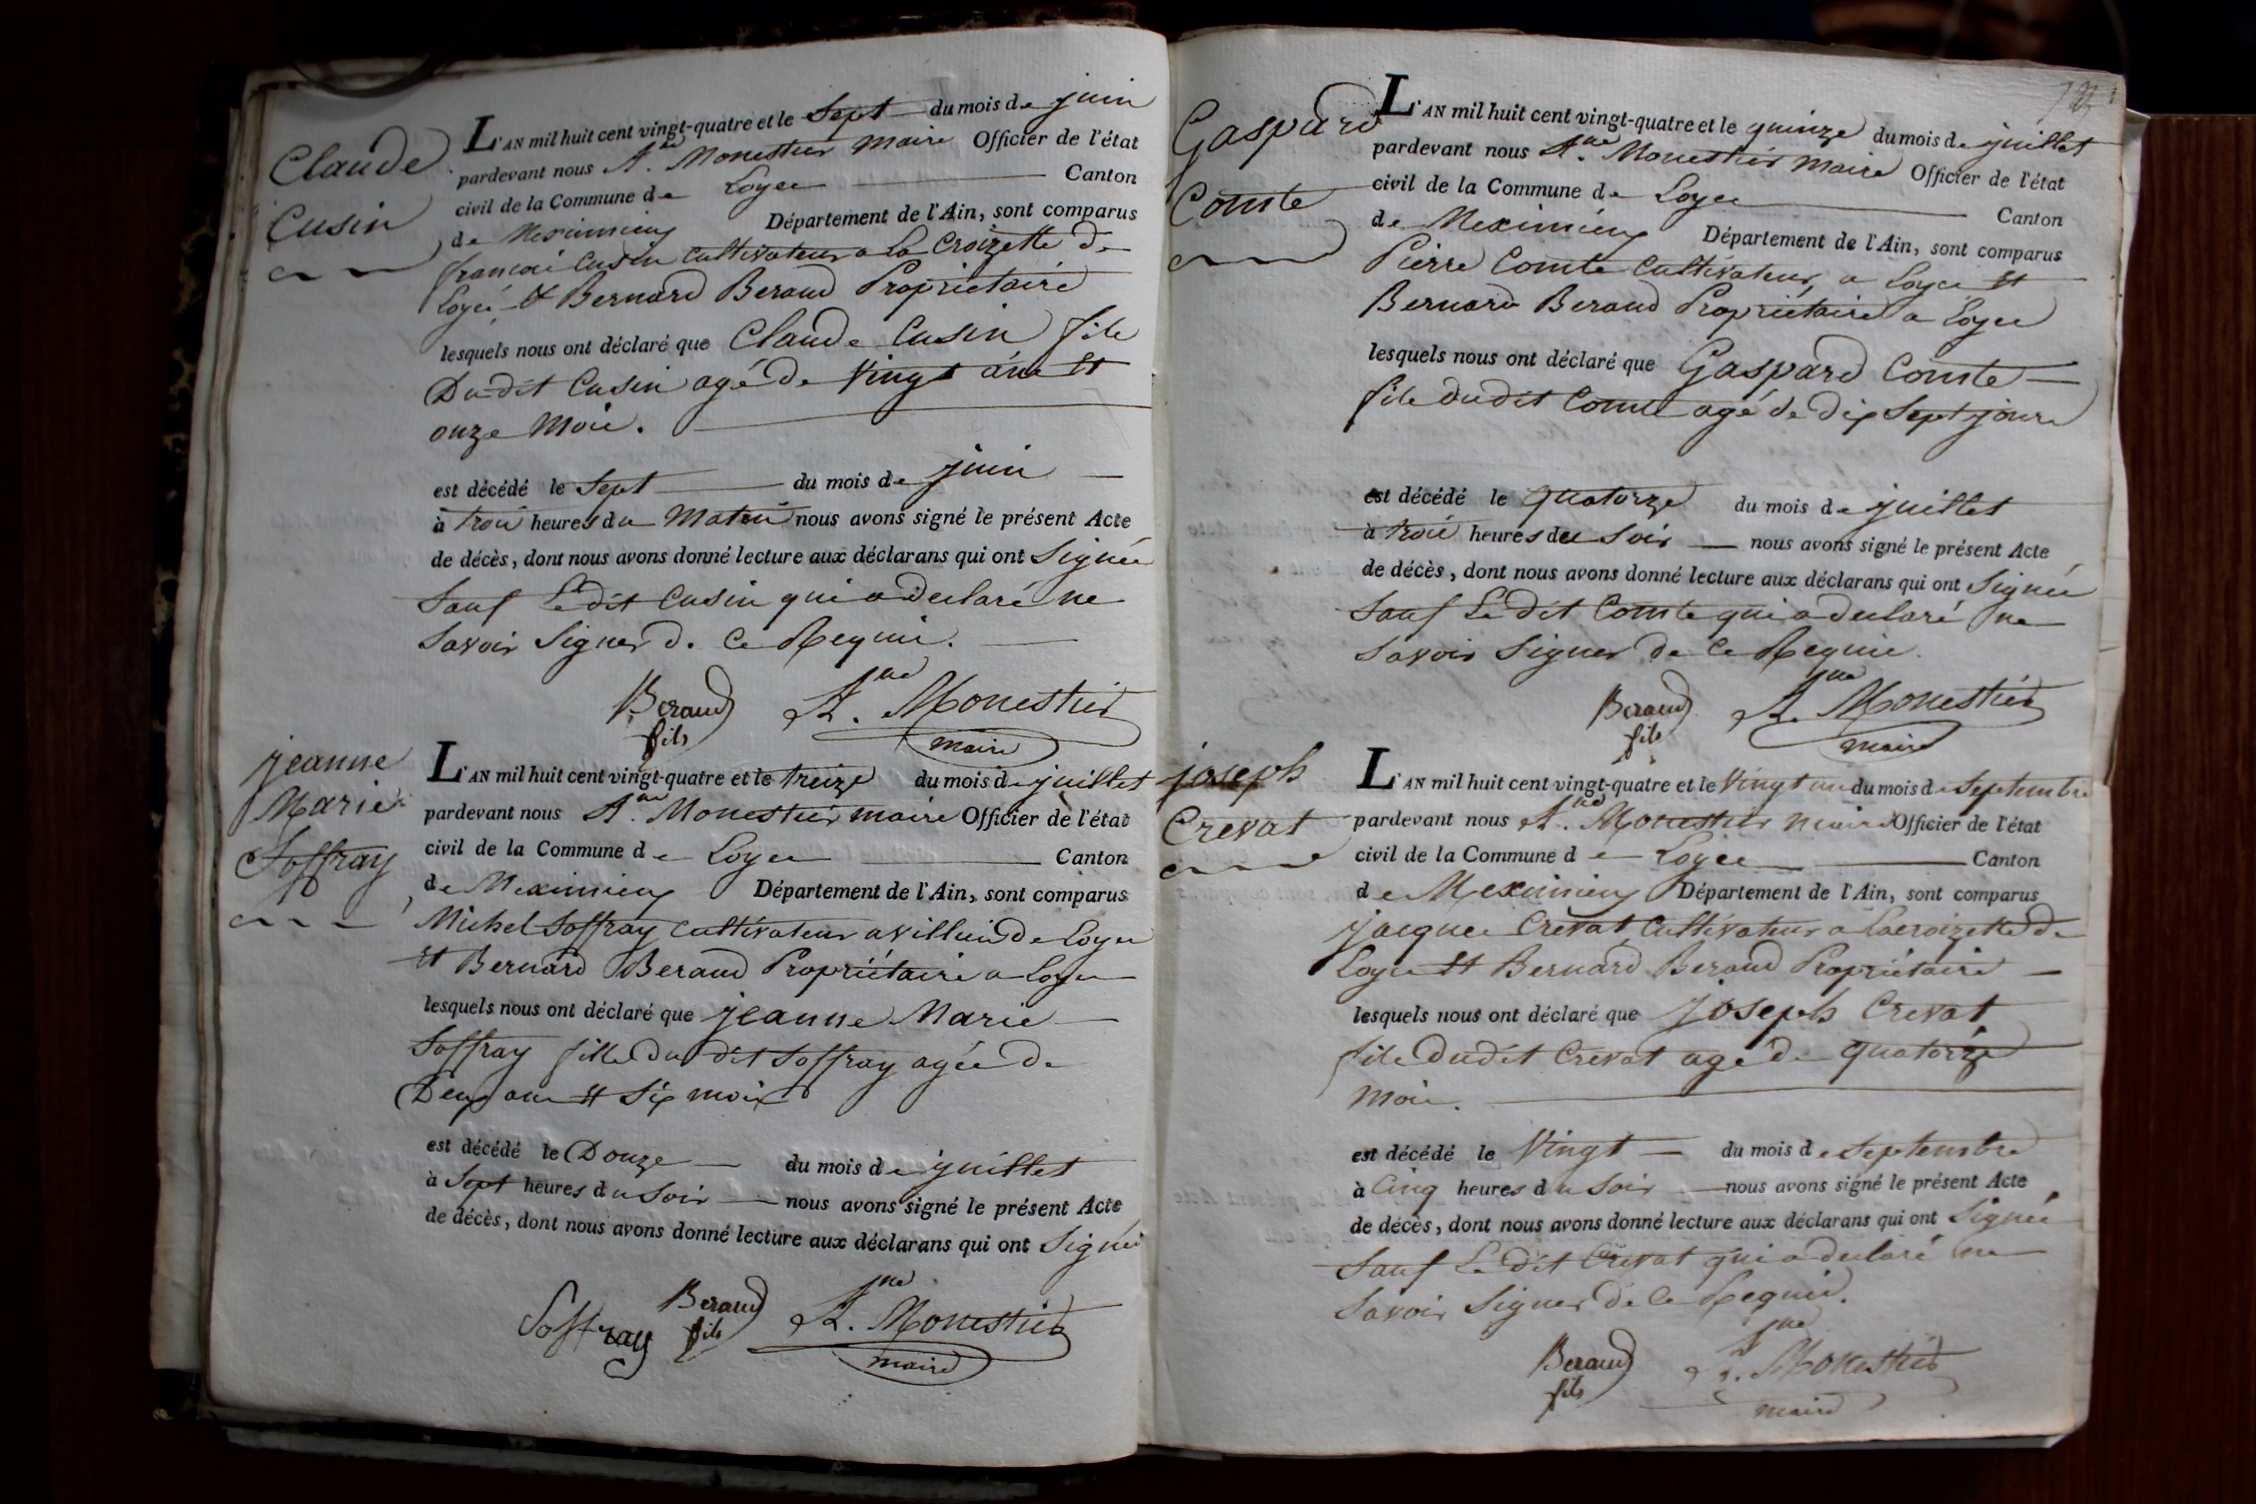 Claude
Cusin
L'AN mil huit cent vingt-quatre et le Sept du mois de juin
pardevant nous A.ne Monestier maire Officier de l'état
civil de la Commune de Loyes Canton
de Meximieux Département de l'Ain, sont comparus
françois Cusin cultivateur a la Croizette de
Loyes et Bernard Beraud Propriétaire
lesquels nous ont déclaré que Claude Cusin fils
Du-dit Cusin agé de Vingt ans et
onze Mois.
est décédé le Sept du mois de juin
à trois heures du Matin nous avons signé le présent Acte
de décès, dont nous avons donné lecture aux déclarans qui ont Signés
Sauf Le dit Cusin qui a declaré ne
Savoir Signer de Ce Requis.
Beraud fils A.ne Monestier
maire
jeanne
Marie
Soffray
L'AN mil huit cent vingt-quatre et le treize du mois de juillet
pardevant nous A.ne Monestier maire Officier de l'état
civil de la Commune de Loyes Canton
de Meximieux Département de l'Ain, sont comparus
Michel Soffray cultivateur a villieu de Loyes
et Bernard Beraud Propriétaire a Loyes
lesquels nous ont déclaré que jeanne Marie
Soffray fille du dit Soffray agée de
Deux ans et Six mois
est décédé le Douze du mois de juillet
à Sept heures du Soir nous avons signé le présent Acte
de décès, dont nous avons donné lecture aux déclarans qui ont Signés
Soffray Beraud fils A.ne Monestier
maire
Gaspard
Comte
L'AN mil huit cent vingt-quatre et le quinze du mois de juillet
pardevant nous A.ne Monestier maire Officier de l'état
civil de la Commune de Loyes Canton
de Meximieux Département de l'Ain, sont comparus
Pierre Comte Cultivateur, a Loyes et
Bernard Beraud Propriétaire a Loyes
lesquels nous ont déclaré que Gaspard Comte
fils dudit Comte agé de dix Sept jours
est décédé le quatorze du mois de juillet
à trois heures du Soir nous avons signé le présent Acte
de décès, dont nous avons donné lecture aux déclarans qui ont Signés
Sauf Le dit Comte qui a declaré ne
Savoir Signer de Ce Requis.
Beraud fils A.ne Monestier
maire
joseph
Crevat
L'AN mil huit cent vingt-quatre et le Vingt un du mois de Septembre
pardevant nous A.ne Monestier maire Officier de l'état
civil de la Commune de Loyes Canton
de Meximieux Département de l'Ain, sont comparus
jacques Crevat Cultivateur a Lacroizette de
Loyes et Bernard Beraud Propriétaire
lesquels nous ont déclaré que joseph Crevat
fils dudit Crevat agé de quatorze
mois.
est décédé le Vingt du mois de Septembre
à Cinq heures du Soir nous avons signé le présent Acte
de décès, dont nous avons donné lecture aux déclarans qui ont Signés
Sauf Le dit Crevat qui a declaré ne
Savoir Signer de Ce Requis.
Beraud fils A.ne Monestier
maire